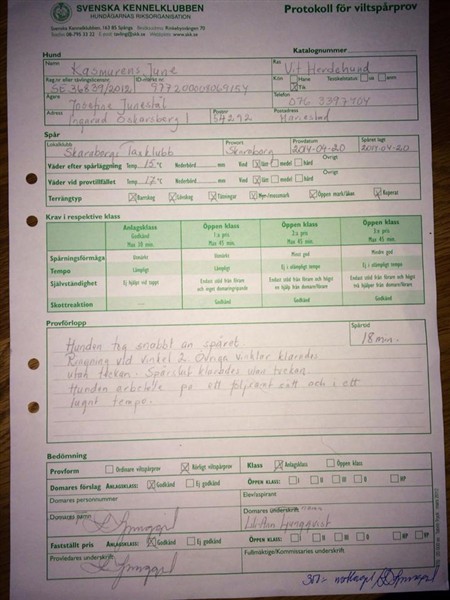 SVENSKA KENNELKLUBBEN
HUNDÄGARNAS RIKSORGANISATION
Protokoll för viltspårprov
Svenska Kennelklubben, 163 85 Spånga
Hund
Katalognummer
Namn Kasmurens June
Ras Vit Herdehund
Reg.nr eller tävlingslicensnr. SE36839/2012
ID-märkn.nr. 977200007069154
Kön Hane
Tik
Testikelstatus
Ägare Josefine Junestål
Telefon
Adress Ingarad Oskarsberg 1
Postnr 54292
Postadress Mariestad
Spår
Lokalklubb Skaraborgs Taxklubb
Provort Skaraborg
Provdatum 2014-04-20
Spåret lagt 2014-04-20
Väder efter spårläggning Temp. 15 Nederbörd mm Vind lätt model hård Övrigt
Väder vid provtillfället Temp. 17 Nederbörd mm Vind lätt model hård Övrigt
Terrängtyp Barrskog Lövskog Tätningar Myr/mossmark Öppen mark/åker Kuperat
Krav i respektive klass
Anlagsklass Godkänd Max 30 min.
Öppen klass 1:a pris Max 45 min.
Öppen klass 2:a pris Max 45 min.
Öppen klass 3:e pris Max 45 min.
Spårningsförmåga Utmärkt Utmärkt Mest god Mindre god
Tempo Lämpligt Lämpligt Ej i olämpligt tempo Ej i olämpligt tempo
Självständighet Ej hjälpt vid tappt Endast stöd från föraren och inget domaringripande Endast stöd från föraren och högst en hjälp från domare/föraren Endast stöd från föraren och högst två hjälper från domare/föraren
Skottreaktion Godkänd Godkänd Godkänd
Provförlopp
Spårtid
18 min.
Hunden tog snabbt an spåret.
Ringning vid vinkel 2. Övriga vinklar klarades
utan tvekan. Spårslut klarades utan tvekan.
Hunden arbetade på ett följsamt sätt och i ett
lugnt tempo.
Bedömning
Provform Ordinarie viltspårprov Rörligt viltspårprov
Klass Anlagsklass Öppen klass
Domares förslag ANLAGSKLASS: Godkänd Ej godkänd ÖPPEN KLASS: I II III 0 HP
Domares personnummer
Elev/aspirant
Domares namn
Domares underskrift
Fastställt pris ANLAGSKLASS: Godkänd Ej godkänd ÖPPEN KLASS: I II III 0 HP
Provledares underskrift
Fullmäktige/Kommissaries underskrift